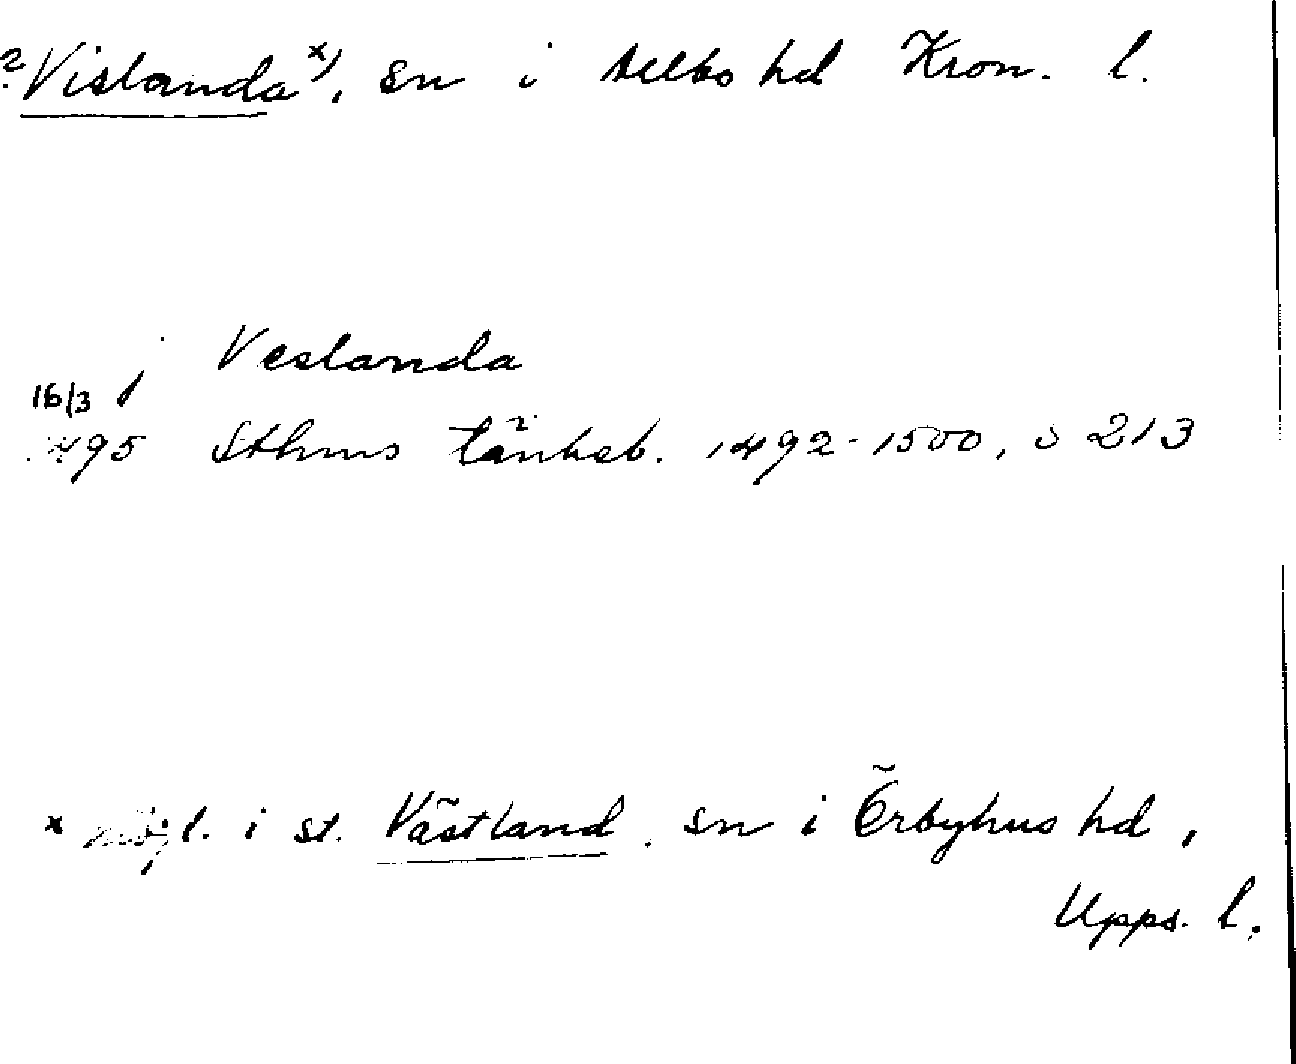 ?Vislanda x), sn i Allbo hd Kron. l.
i Veslanda
16/3
1495 Sthms tänkeb. 1492-1500, s 213
x möjl. i st. Västland, sn i Örbyhus hd,
Upps. l.